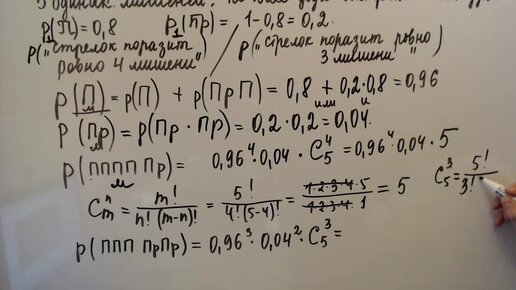 5 одинак. мишеней.
P₁(П) = 0,8 P₁(Пр) = 1-0,8 = 0,2.
P("Стрелок поразит ровно 4 мишени") / P("Стрелок поразит ровно 3 мишени")
P(П)м = P(П) + P(Пр П) = 0,8 + 0,2·0,8 = 0,96
или и
P(Пр)м = P(Пр · Пр) = 0,2·0,2 = 0,04.
P(ПППП Пр)м = 0,96⁴·0,04 · C₅⁴ = 0,96⁴·0,04 · 5
Cₘⁿ = m!/(n!(m-n)!) = 5!/(4!(5-4)!) = (1·2·3·4·5)/(1·2·3·4·1) = 5 C₅³ = 5!/(3!
P(ППП ПрПр) = 0,96³·0,04²·C₅³ =